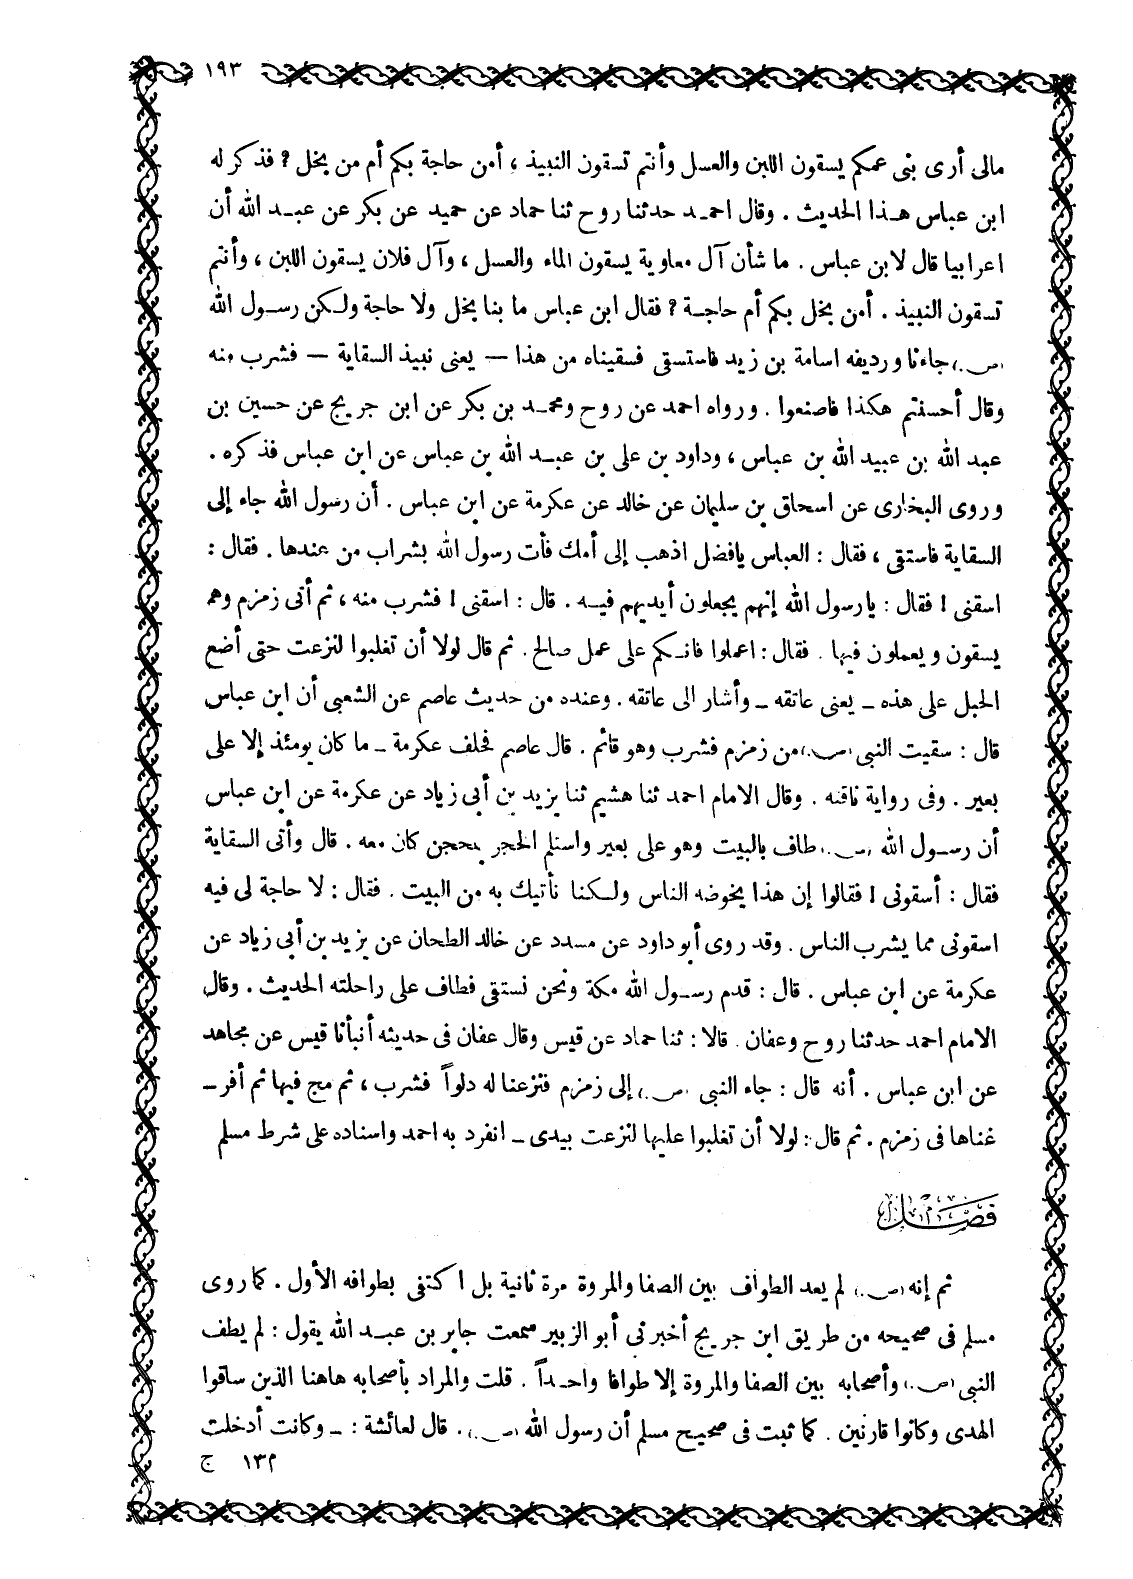 ١٩٣
مالى أرى بنى عمكم يسقون اللبن والعسل وأنتم تسقون النبيذ ، أمن حاجة بكم أم من بخل ? فذكر له
ابن عباس هـذا الحديث . وقال احمـد حدثنا روح ثنا حماد عن حميد عن بكر عن عبـد الله أن
اعرابيا قال لابن عباس . ما شأن آل معاوية يسقون الماء والعسل ، وآل فلان يسقون اللبن ، وأنتم
تسقون النبيذ . أمن بخل بكم أم حاجـة ? فقال ابن عباس ما بنا بخل ولا حاجة ولـكن رسـول الله
(ص) جاءنا ورديفه اسامة بن زيد فاستسقى فسقيناه من هذا — يعنى نبيذ السقاية — فشرب منه
وقال أحسنتم هكذا فاصنعوا . ورواه احمد عن روح ومحمـد بن بكر عن ابن جريج عن حسين بن
عبد الله بن عبيد الله بن عباس ، وداود بن على بن عبـد الله بن عباس عن ابن عباس فذكره .
وروى البخارى عن اسحاق بن سليمان عن خالد عن عكرمة عن ابن عباس . أن رسول الله جاء إلى
السقاية فاستقى ، فقال : العباس يافضل اذهب إلى أمك فأت رسول الله بشراب من عندها . فقال :
اسقنى ! فقال : يارسول الله إنهم يجعلون أيديهم فيـه . قال : اسقنى ! فشرب منه ، ثم أتى زمزم وهم
يسقون ويعملون فيها . فقال : اعملوا فانـكم على عمل صالح . ثم قال لولا أن تغلبوا لنزعت حتى أضع
الحبل على هذه ـ يعنى عاتقه ـ وأشار الى عاتقه . وعنده من حديث عاصم عن الشعبى أن ابن عباس
قال : سقيت النبى (ص) من زمزم فشرب وهو قائم . قال عاصم فحلف عكرمة ـ ما كان يومئذ إلا على
بعير . وفى رواية ناقته . وقال الامام احمد ثنا هشيم ثنا يزيد بن أبى زياد عن عكرمة عن ابن عباس
أن رسـول الله (ص) طاف بالبيت وهو على بعير واستلم الحجر بمحجن كان معه . قال وأتى السقاية
فقال : أسقونى ! فقالوا إن هذا يخوضه الناس ولـكنا نأتيك به من البيت . فقال : لا حاجة لى فيه
اسقونى مما يشرب الناس . وقد روى أبو داود عن مسدد عن خالد الطحان عن يزيد بن أبى زياد عن
عكرمة عن ابن عباس . قال : قدم رسـول الله مكة ونحن نستقى فطاف على راحلته الحديث . وقال
الامام احمد حدثنا روح وعفان . قالا : ثنا حماد عن قيس وقال عفان فى حديثه أنبأنا قيس عن مجاهد
عن ابن عباس . أنه قال : جاء النبى (ص) إلى زمزم فنزعنا له دلواً فشرب ، ثم مج فيها ثم أفر ـ
غناها فى زمزم . ثم قال : لولا أن تغلبوا عليها لنزعت بيدى ـ انفرد به احمد واسناده على شرط مسلم
فصل
ثم إنه (ص) لم يعد الطواف بين الصفا والمروة مرة ثانية بل اكتفى بطوافه الأول . كما روى
مسلم فى صحيحه من طريق ابن جريج أخبرنى أبو الزبير سمعت جابر بن عبـد الله يقول : لم يطف
النبى (ص) وأصحابه بين الصفا والمروة إلا طوافا واحـداً . قلت والمراد بأصحابه هاهنا الذين ساقوا
الهدى وكانوا قارنين . كما ثبت فى صحيح مسلم أن رسول الله (ص) . قال لعائشة : ـ وكانت أدخلت
م١٣ ج